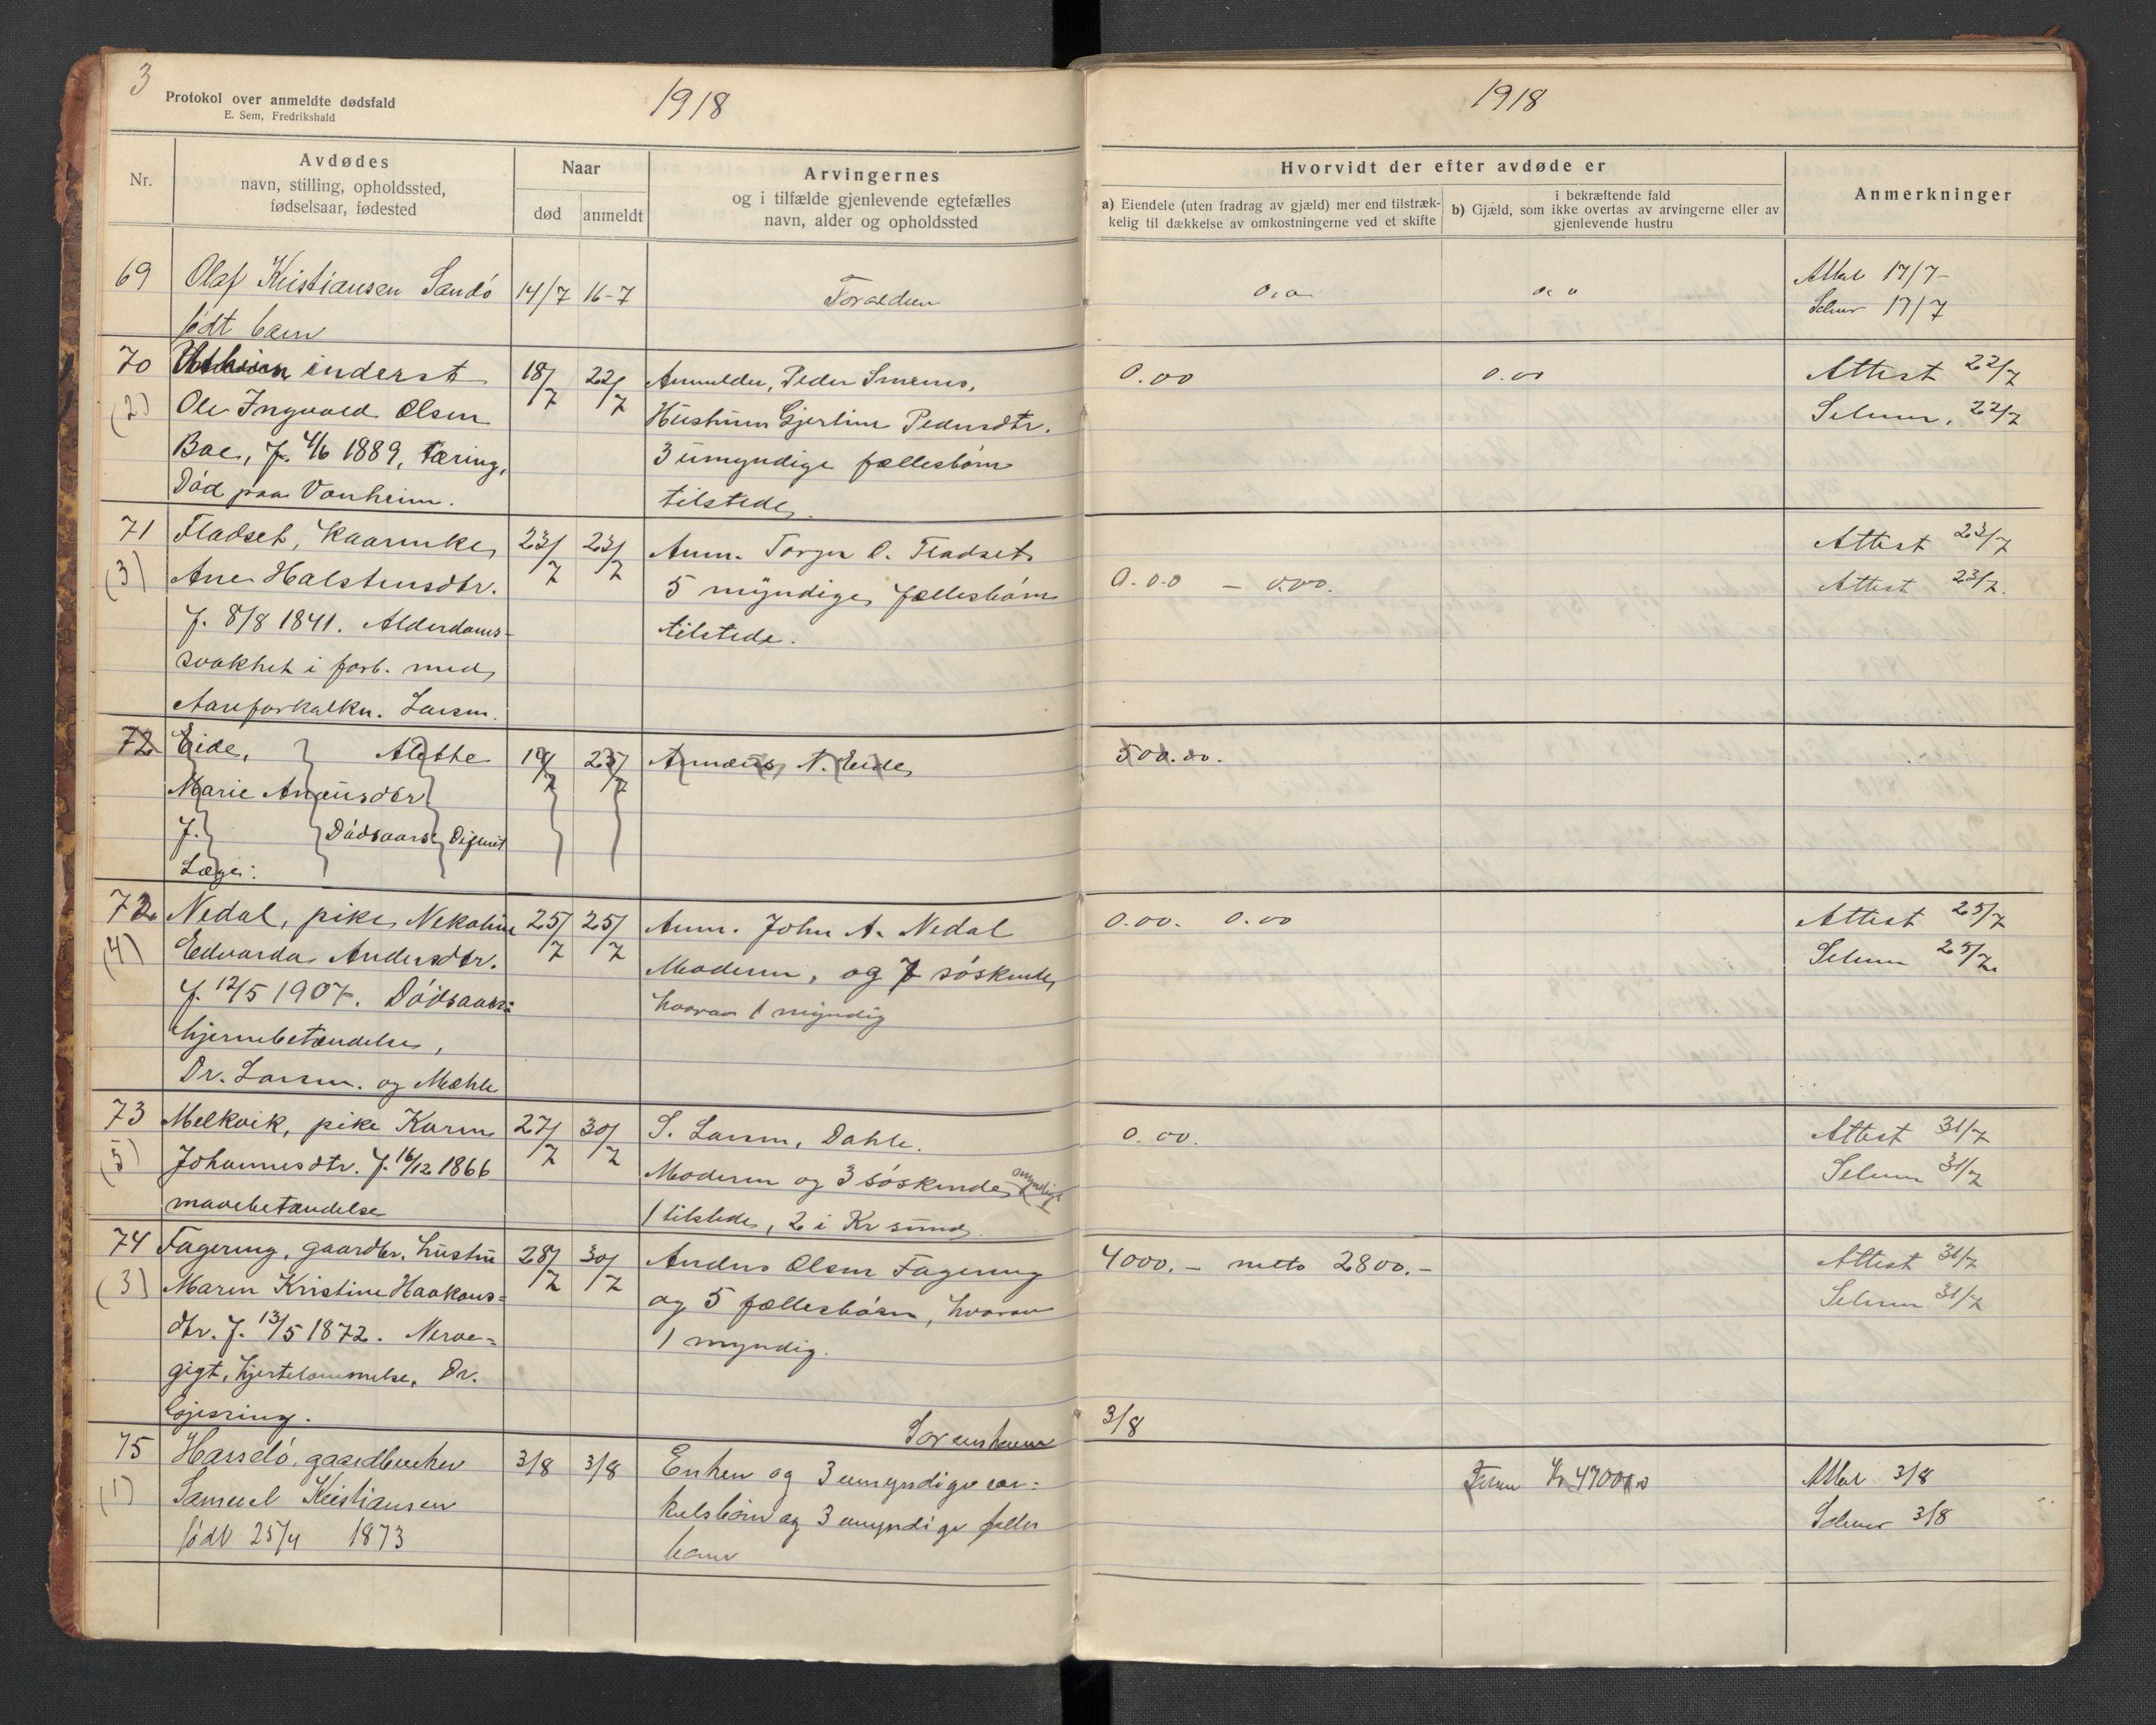 3
Protokol over anmeldte dødsfald
E. Sem, Fredrikshald
1918
Nr.
Avdødes
navn, stilling, opholdssted,
fødselsaar, fødested
Naar
død
anmeldt
Arvingernes
og i tilfælde gjenlevende egtefælles
navn, alder og opholdssted
69
Olaf Kristiansen Sandö
født barn
14/7
16-7
Foraldren
70
(2)
inderst
Ole Ingvald Olsen
Boe, f. 4/6 1889, tæring,
Död paa Vonheim.
18/7
22/7
Anmelder, Peder
Hustruen Gjertine Pedersdtr.
3 umyndige fællesbörn
tilstede.
71
(3)
Fladset, kaarenke
Ane Halstensdtr.
f. 8/8 1841. Alderdoms-
svakhet i forb. med
Aareforkalkn. Larsen.
23/7
23/7
Anm. Torger O. Fladset
5 myndige fællesbörn
tilstede.
72
Eide, Alethe
Marie Anæusdtr
f. Dödsaars. Difterit
Læge:
19/7
25/7
Annæus N. Eide
72
(4)
Nedal, pike Nekoline
Edvarda Andersdtr.
f. 12/5 1907. Dödsaars:
hjernebetændelse,
Dr. Larsen. og Mæhle
25/7
25/7
Anm. John A. Nedal
Moderen, og 7 söskende,
hvorav 1 myndig
73
(5)
Melkvik, pike Karen
Johannesdtr. f. 16/12 1866
mavebetændelse
27/7
30/7
S. Larsen, Dahle.
Moderen og 3 söskende, myndige
1 tilstede, 2 i Kr sund.
74
(3)
Fagering, gaardbr. hustru
Maren Kristine Haakons-
dtr. f. 13/5 1872. Nerve-
gigt, hjertelammelse, Dr.
Gjessing.
28/7
30/7
Anders Olsen Fagering
og 5 fællesbörn, hvorav
1 myndig.
Sorenskriveren
75
(1)
gaardbruker
Samuel Kristiansen
født 25/4 1873
3/8
3/8
Enken og 3 umyndige sær-
kulsbörn og 3 umyndige felles
barn
1918
Hvorvidt der efter avdøde er
a) Eiendele (uten fradrag av gjæld) mer end tilstræk-
kelig til dækkelse av omkostningerne ved et skifte
i bekræftende fald
b) Gjæld, som ikke overtas av arvingerne eller av
gjenlevende hustru
Anmerkninger
0,0
0,0
Attest 17/7-
17/7
0.00
0.00
Attest 22/7
22/7
0.00 - 0.00.
Attest 23/7
Attest 23/7.
500.00.
0.00. 0.00
Attest 25/7
25/7.
0.00.
Attest 31/7
31/7
4000.- netto 2800.-
Attest 31/7
31/7
3/8
Attest 3/8
3/8